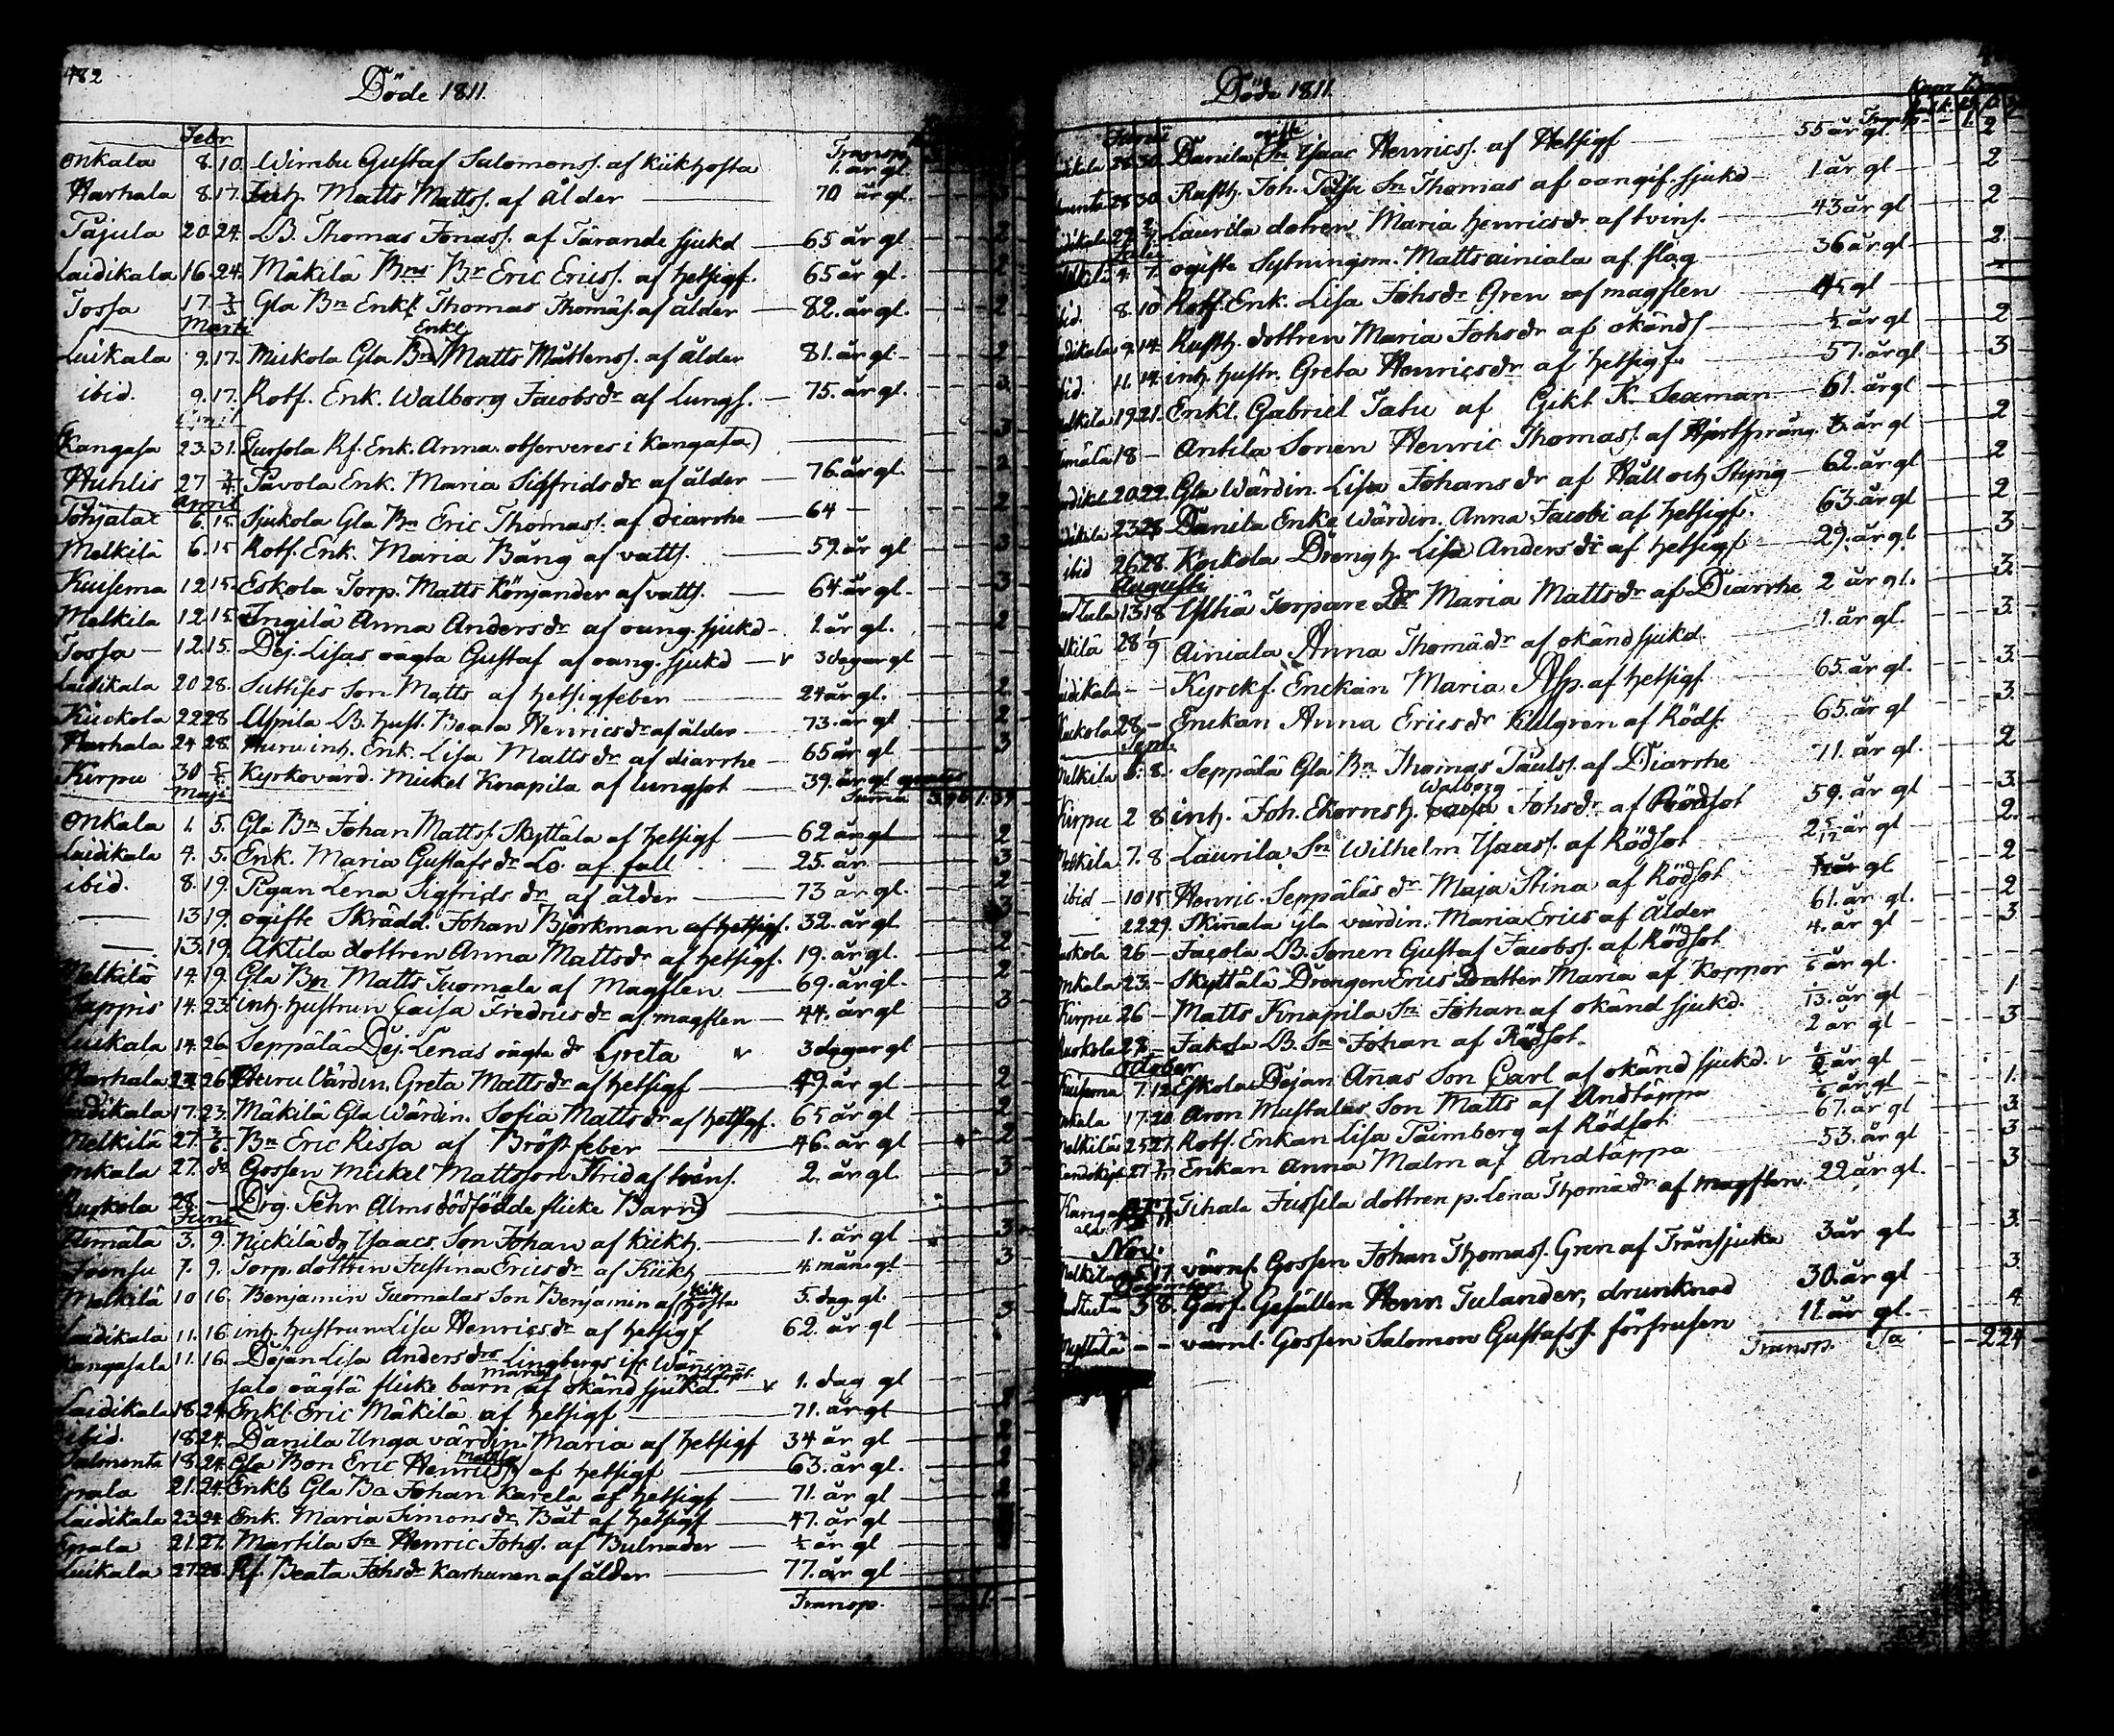 482
Döde 1811.
Febr
Transp.
Onkala 8. 10. Wimbu Gustaf Salomonss. af kikhosta 1. år gl.
Harhala 8. 17. Inh. Matts Mattss. af ålder 70 år gl. 3
Pajula 20. 24. B. Thomas Jonass. af Tärande sjukd 65 år gl 2
Laidikala 16. 24. Mäkilä Bns Br Eric Ericss. af hetsigf. 65 år gl. 2
Tossa 17. 3/3 Gla Bn Enkl. Thomas Thomæs. af ålder 82. år gl. 2
Marti
Luikala 9. 17. Mickola Gla Bn Enkl Matts Måttenss. af ålder 81. år gl 2
ibid. 9. 17. Rotf. Enk. Walborg Jacobsdr af Lungs. 75. år gl. 3
Kangasa 23. 31. (Enk. Anna observeres i Kangasa) 3
Huhlis 27 Pavola Enk. Maria Sigfridsdr af ålder 76. år gl. 2
April
6. 15. Sjukola Gla Bn Eric Thomass. af diarrhe 64 2
Melkilä 6. 15 Rotf. Enk. Maria Bång af watts. 59. år gl 3
Kuisema 12 15. Eskola Torp. Matts Könjander af watts. 64. år gl. 3
Melkila 12 15. Ingilä Anna Andersdr af oang. sjukd 1. år gl. 2
Tossa 12. 15. Dej. Lisas oägta Gustaf af oang. sjukd v 3 dagar gl
Laidikala 20 28. Suttises Son Matts af hetsigfeber 24 år gl. 2
Kuckola 22 28 Aspila B. hust. Beata Henricsdr af ålder 73. år gl 2
Harhala 24 28. Huru inh. Enk. Lisa Mattsdr af diarrhe 65 år gl 3
Kirpu 30 5/5 Kyrkovärd. Mickel Knapila af lungsot 39. år gl
Maji
Suma
Onkala 1. 5. Gla Bn Johan Mattss. Skyttäla af hetsigf 62 år gl 2
Laidikala 4. 5. Enk. Maria Gustafsdr Lo. af fall 25. år 3
ibid. 8. 19 Pigan Lena Sigfridsdr af ålder 73 år gl. 2
13 19. ogifte Skrädd. Johan Björkman af hetsigf. 32. år gl 3
13. 19. Aktila dottren Anna Mattsdr af hetsigf. 19. år gl. 2
Melkilä 14. 19. Gla Bon Matts Tuomala af Magflen 69. år gl. 2
14. 23. inh. hustrun Caisa Fredricsdr af magflen 44. år gl 3
Luikala 14. 26 Seppälä Dej. Lenas oägta dr Greta v 3 dagar gl
Harhala 24. 26 Huru Värdin. Greta Mattsdr af hetsigf 49. år gl 2
Laidikala 17. 23. Mäkilä Gla Wärdin. Sofia Mattsdr af hetsigf. 65 år gl 2
Melkilä 27. 3/6. Bn Eric Rissa af Bröstfeber 46. år gl 2
Onkala 27. do Gossen Mickel Mattsson Strid af tvins. 2. år gl. 3
Ruokola 28. Drg. Fehr Alms dödfödde flicke Barn)
Juni
3. 9. Nickilä dr Ysaacs. Son Johan af kikh. 1. år gl 3
7. 9. Torp. dottren Justina Ericsdr af Kikh 4. mån gl 3
Melkilä 10 16. Benjamin Tuomalas Son Benjamin af kikhosta 5. dag. gl.
Laidikala 11. 16. inh. hustrun Lisa Henricsdr af hetsigf 62. år gl 3
Kangasala 11. 16. Dejan Lisa Andersdrs Lingbergs
salo oägta flicke barn Maria af okänd sjukd. v 1. dag gl
Laidikala 18. 24. Enkl. Eric Mäkilä af hetsigf 71. år gl
ibid. 18. 24. Danila Unga värdin. Maria af hetsigf 34 år gl
Salmenta 18. 24. Gla Bon Eric Henricss. af hetsigf 63. år gl.
Epala 21. 24. Enkl. Gla Bo Johan Karela af hetsigf 71. år gl
Laidikala 23. 24. Enk. Maria Simonsdr Båt af hetsigf 47. år gl
Epala 21. 27. Martila Sn Henric Johss. af Bulnader 1/2 år gl
Luikala 27. 28. Rf. Beata Johsdr Karhunen af ålder 77. år gl
Transp.
Döde 1811.
Junii Transp. 1. 2
28 30. Danila ogifte Sn Ysaac Henricss. af Hetsigf 55 år gl. 2
28 30. Rusth. Joh. Sn Thomas af oangif. sjukd 1. år gl 2
29. Laurila dotren Maria Henricsdr af tvins. 43 år gl 2
Julii
4. 7. ogifte Sytningsm. Matts ainiala af slag 36 år gl 2.
ibid. 8. 10 Rotf. Enk. Lisa Johsdr Gren af magflen gl
9. 14. Rusth. dottren Maria Johsdr af okänds 1/2 år gl 2
ibid. 11. 14. inh. hustr. Greta Henricsdr af hetsigf. 57. år gl 3
Melkila 19 21. Enkl. Gabriel Tatu af Gikt K. Seaman 61. år gl
18 Antila Sonen Henric Thomass. af Hjertsprång år gl 2
20 22. Gla Wärdin. Lisa Johansdr af Håll och Styng 62. år gl 2
23 28 Danila Enke Wärdin. Anna Jacobi af hetsigf. 63. år gl 2
ibid 26 28. Kockola Drengh. Lisa Andersdr af hetsigf 29. år gl 3
Augusti
13. 18 Ylstiä Torpare Dr Maria Mattsdr af Diarrhe 2 år gl. 3.
Melkilä 28 1/9 Ainiala Anna Thomædr af okänd sjukd 1. år gl. 3
Laidikala Kyrckf. Enckan Maria Asp. af hetsigf 65. år gl. 3.
Kuckola 28 Enckan Anna Ericsdr Kulgren af Röds. 65. år gl 3.
Sept.
Melkila 5. 8. Seppälä Gla Bn Thomas Paulss. af Diarrhe 71. år gl. 2
Kirpu 2 8. inh. Joh. Ekornes h. Walborg Johsdr af Rödsot 59. år gl 3.
Melkila 7. 8 Laurila Sn Wilhelm Ysaass. af Rödsot 2 5/12 år gl 2.
ibid 10 15 Henric. Seppäläs dr Maja Stina af Rödsot gl 2
22 29. Skinala gla värdin. Maria Erics af Ålder 61. år gl. 2
26 Jacola B. Sonen Gustaf Jacobss. af Rödsot 4. år gl 3
Onkala 23. Skyttälä Drengen Erics Dotter Maria af Koppor 1/6 år gl.
Kirpu 26 Matts Knapila Sn Johan af okänd sjukd. år gl 1
Ruokola 28. Jakola B. Sn Johan af Rödsot. 2 år gl 3
October
Kuisema 7. 12 Eskola Dejan Annas Son Carl af okänd sjukd. v år gl
17. 20 Aron Mustalas Son Matts af Andtäppa 1/6 år gl 1.
Melkilä 25 27. Rotf. Enkan Lisa Palmberg af Rödsot 67. år gl 3
27. Enkan Anna Malm af Andtäppa 53. år gl 3
Kangasala Tihala Jussila dottren p. Lena Thomædr af magflen. 22 år gl. 3
Nov.
Melkilä 17. värnl. Gossen Johan Thomass. Gren af Trånsjuka 3 år gl. 3.
December
5 8. Garf. Gesällen Henr. Tulander, drunknad 30. år gl 3
värnl. Gossen Salomon Gustafss. förfrusen 11. år gl. 4
Transp. Sa 2 24